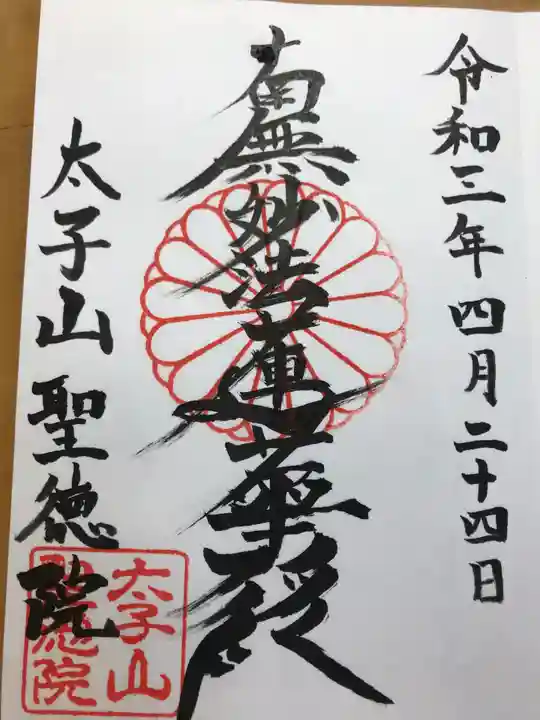 令和三年四月二十四日
南無妙法蓮華経
太子山聖徳院
太子山
聖徳院